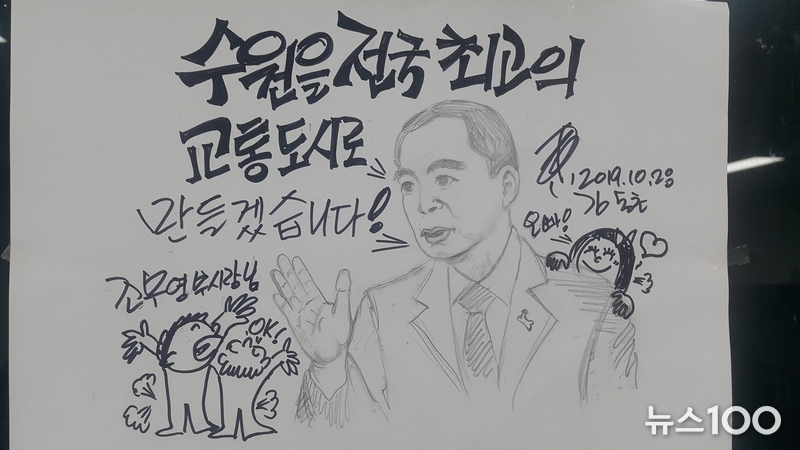 수원을 전국 최고의
교통 도시로
만들겠습니다!
2019.10.28
오빠!
조무영 부시장님
OK!
뉴스100